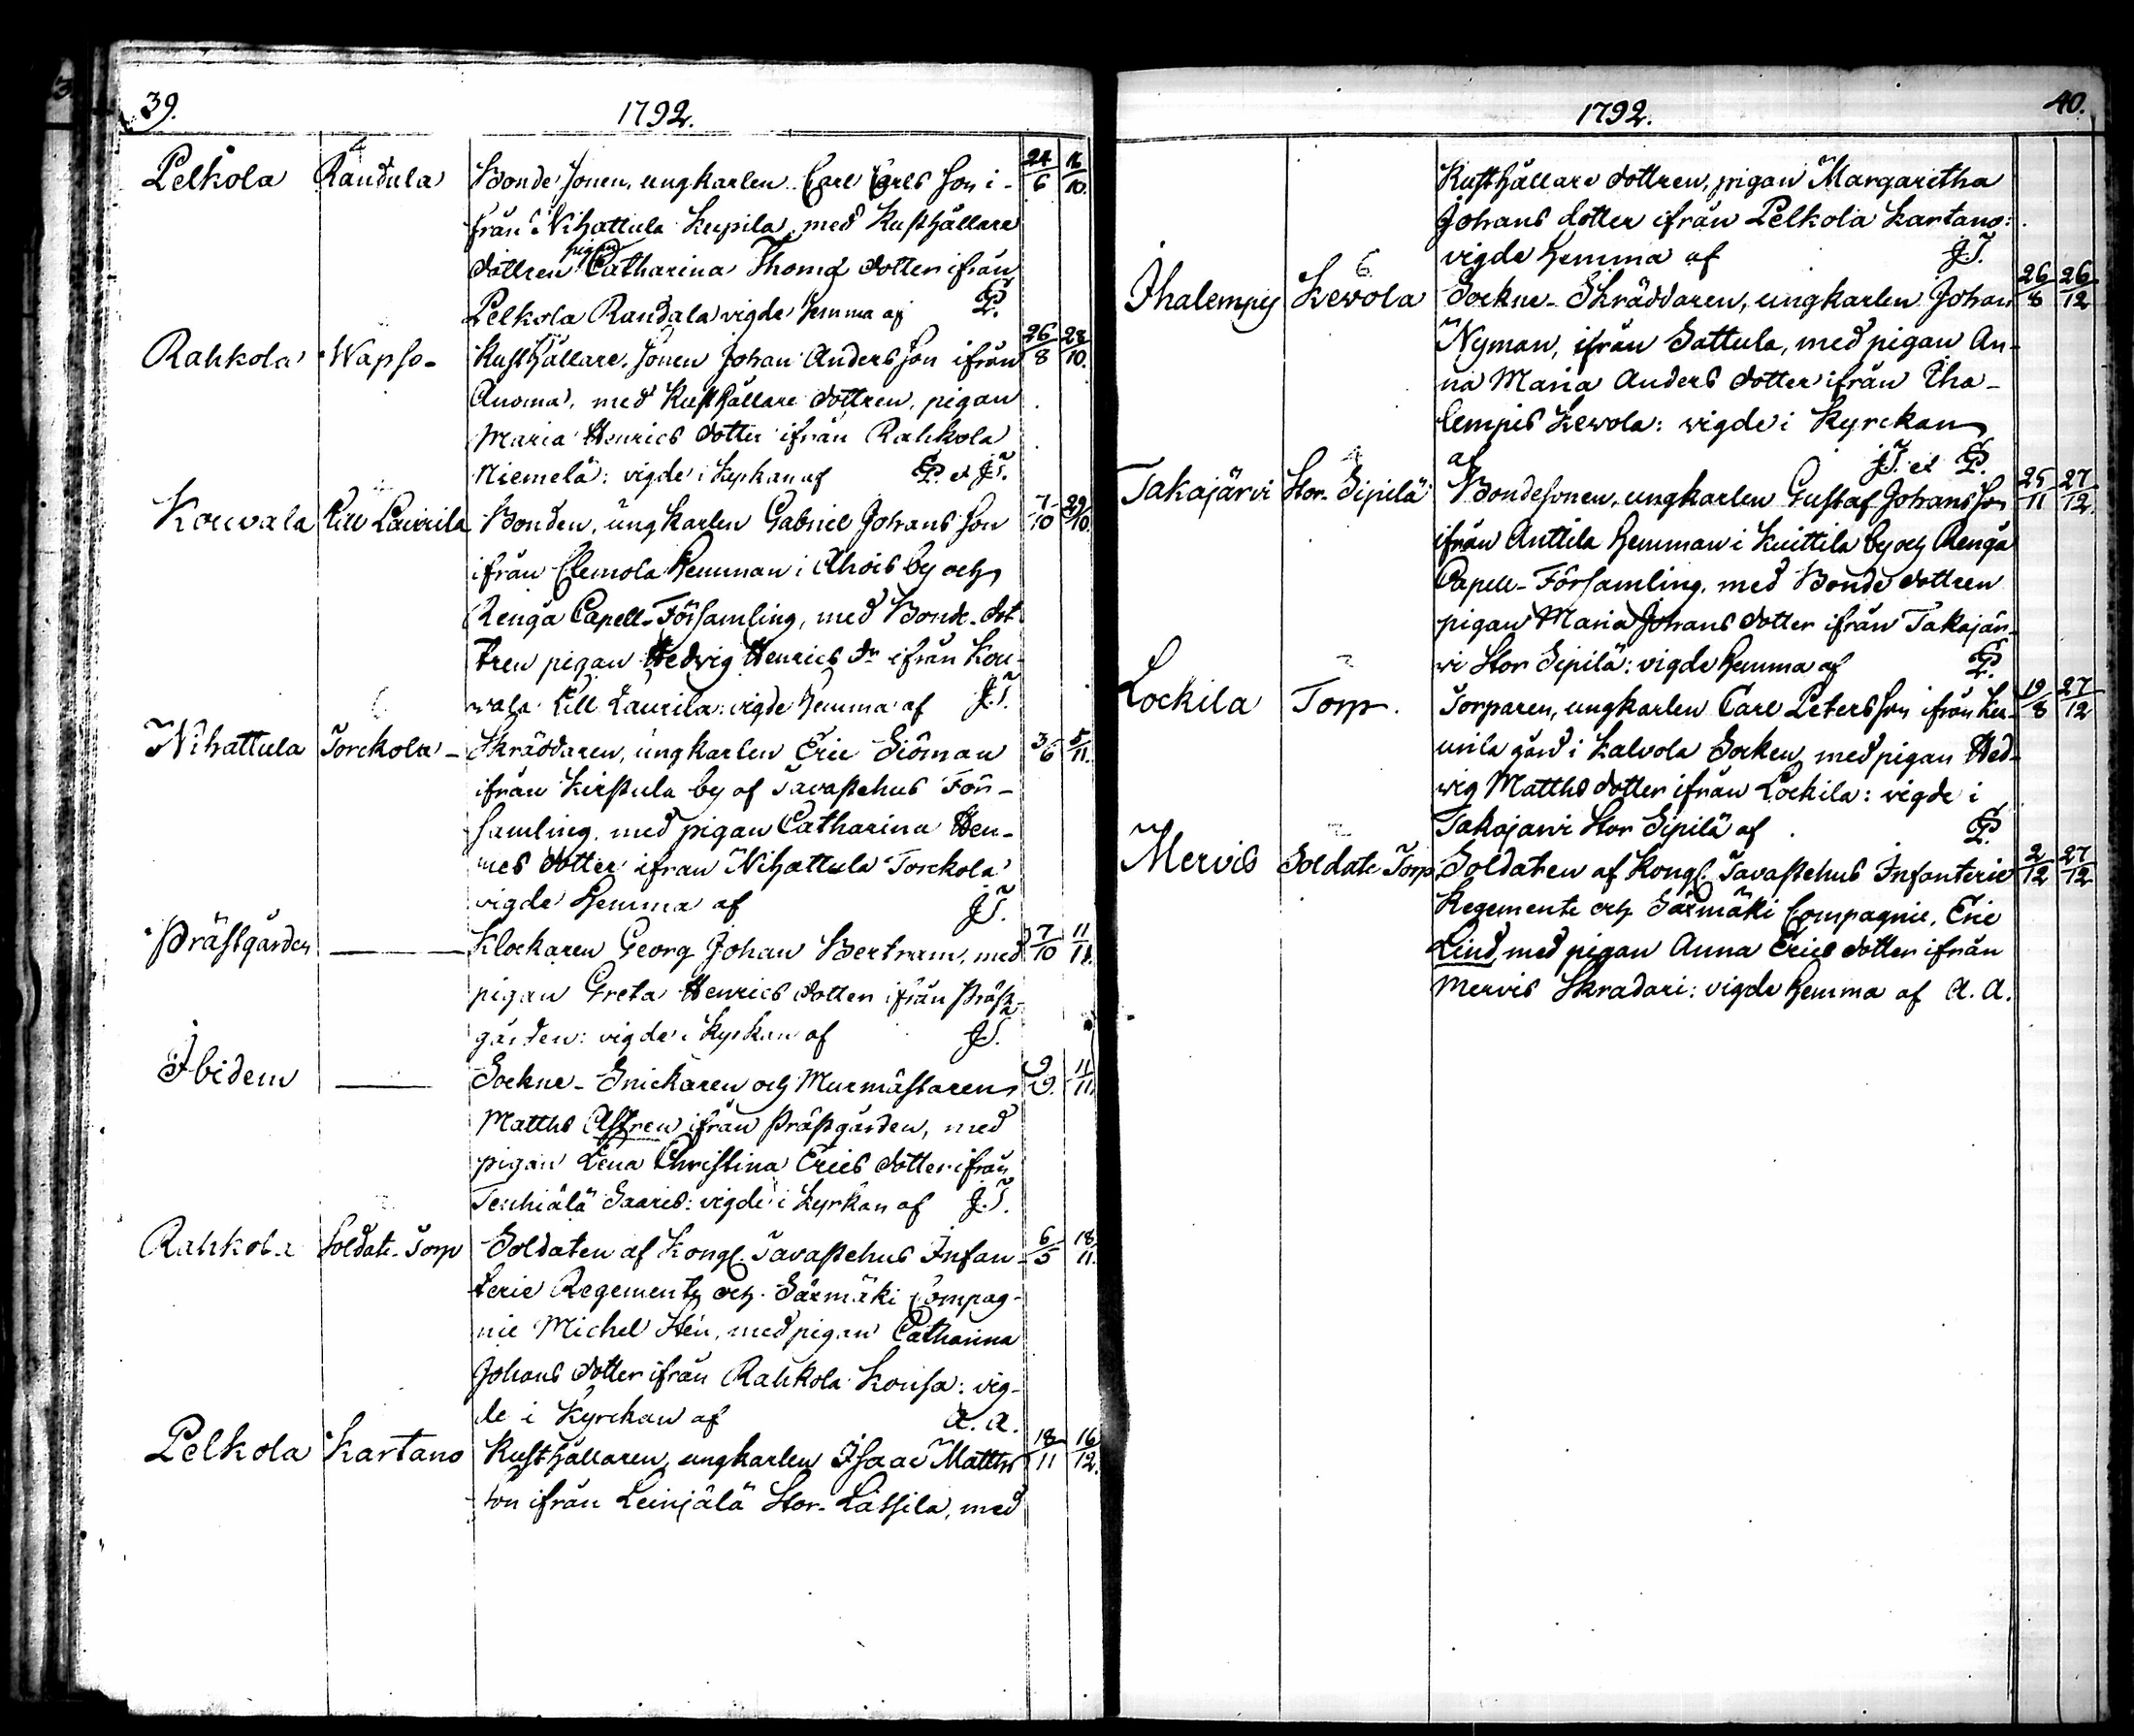 39.
1792.
Pelkola Randala Bonde Sonen, ungkarlen Carl Carls Son i- 24/6 16/10.
från Nihattula Kupila, med Rusthållare
pigan
dottren Catharina Thomæ dotter ifrån
Pelkola Randala vigde hemma af
Rahkola Wapso- Rusthållare Sonen Johan Anders Son ifrån 26/8 28/10.
Anoma, med Rusthållare dottren, pigan
Maria Henrics dotter ifrån Rahkola
Niemelä: vigde i Kyrkan af et J.T.
Kouvala Lill Laurila Bonden, ungkarlen Gabriel Johans Son 7/10 29/10.
ifrån Clemola Hemman i Ahois by och
Renga Capell-Församling, med Bonde-dot
tren pigan Hedvig Henrics dr ifrån Kou-
wala Lill Laurila: vigde hemma af J.T.
Nihattula Torckola- Skräddaren, ungkarlen Eric Siöman 3/6 5/11.
ifrån Kirstula by af Tavastehus För-
samling, med pigan Catharina Hen-
rics dotter ifran Nihattula Torckola
vigde hemma af J.T.
Prästgården Klockaren Georg Johan Bertram, med 7/10 11/11.
pigan Greta Henrics dotter ifrån Präst-
gården: vigde i Kyrkan af J.T.
Ibidem Sockne-Snickaren och Murmästaren 9/9. 11/11
Matths Astren ifrån Prästgården, med
pigan Lena Christina Erics dotter ifrån
Tenhiälä Saaris: vigde i Kyrkan af J.T.
Rahkola Soldate-Torp Soldaten af Kongl. Tavastehus Infan- 6/5 18/11.
terie Regemente och Särmäki Compag-
nie Michel Stén, med pigan Catharina
Johans dotter ifrån Rahkola Kousa: vig-
de i Kyrckan af A. A.
Pelkola Kartano Rusthållaren, ungkarlen Isaac Matths 18/11 16/12.
son ifrån Leinjälä Stor-Lassila, med
40.
1792.
Rusthållare dottren, pigan Margaretha
Johans dotter ifrån Pelkola Kartano:
vigde hemma af J.T.
Ihalempis Kewola 6 Sockne-Skräddaren, ungkarlen Johan 26/8 26/12
Nyman, ifrån Sattula, med pigan An-
na Maria Anders dotter ifrån Iha-
lempis Kewola: vigde i Kyrckan
af J.T. et
Takajärvi Stor-Sipilä Bondesonen, ungkarlen Gustaf Johans Son 25/11 27/12
ifrån Anttila Hemman i Kuittila by och Renga
Capell-Församling, med Bonde dottren
pigan Maria Johans dotter ifrån Takajär-
wi Stor Sipilä: vigde hemma af
Lockila Torp. Torparen, ungkarlen Carl Peters Son ifrån Ku- 19/8 27/12
unila gård i Kalvola Socken, med pigan Hed-
wig Matths dotter ifrån Lockila: vigde i
Takajarvi Stor Sipilä af
Mervis Soldate Torp Soldaten af Kongl. Tavastehus Infanterie 2/12 27/12
Regemente och Särmäki Compagnie, Eric
Lind, med pigan Anna Erics dotter ifrån
Mervis Skradari: vigde hemma af A. A.